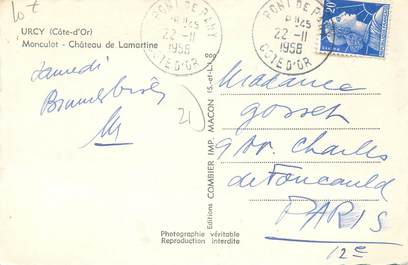 URCY (Côte-d'Or)
Monculot - Château de Lamartine
samedi
PONT DE PANY
22-11
1958
COTE D'OR
PONT DE PANY
22-11
1958
COTE D'OR
20F
Madame
Gosset
9 Av. Charles
de Foucauld
PARIS
12e
21
Editions COMBIER IMP. MACON (S.-et-L.)
Photographie véritable
Reproduction interdite